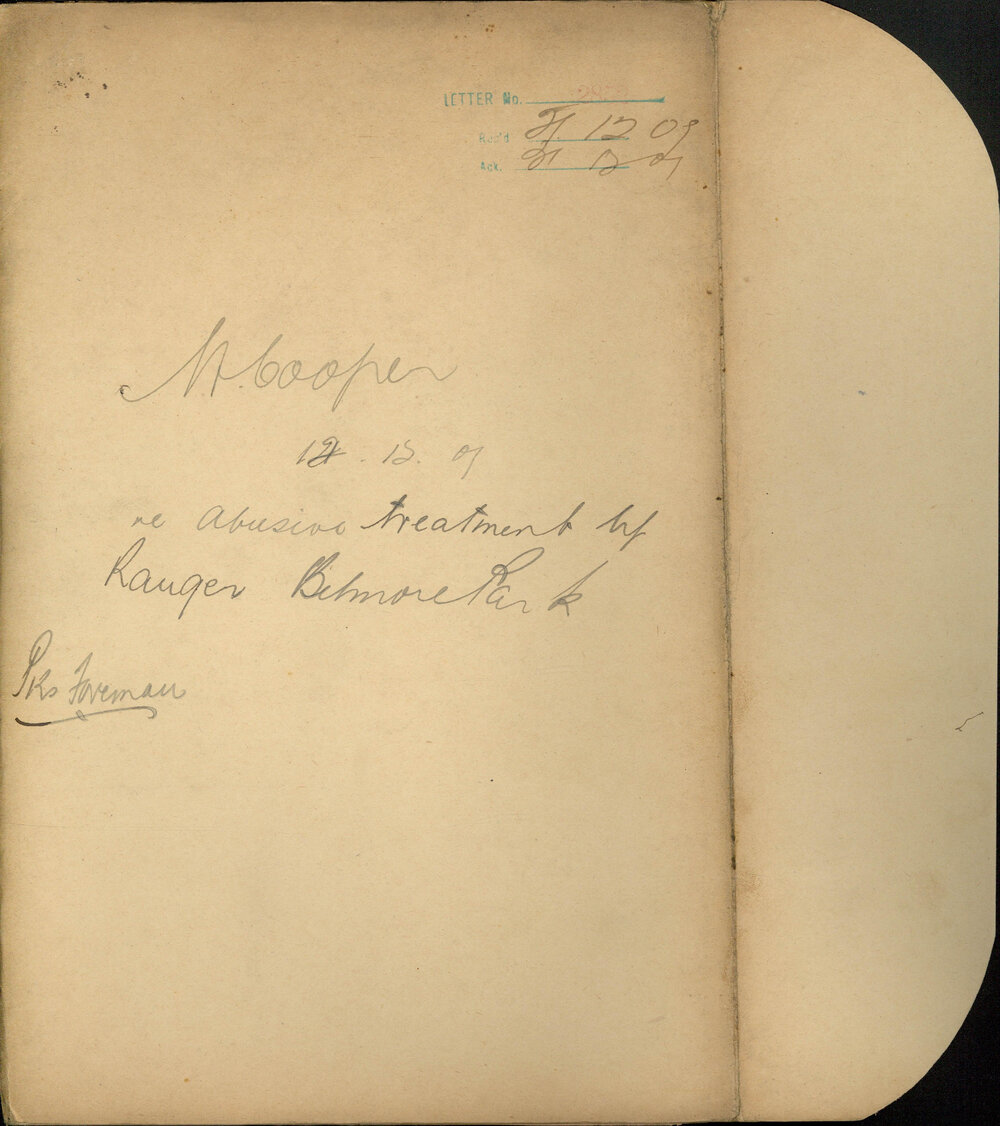 LETTER No.
Rec'd 21 12 09
Ack. 21 12 09
M. Cooper
12. 09
re abusive treatment by
Ranger Belmore Park
Pks Foreman